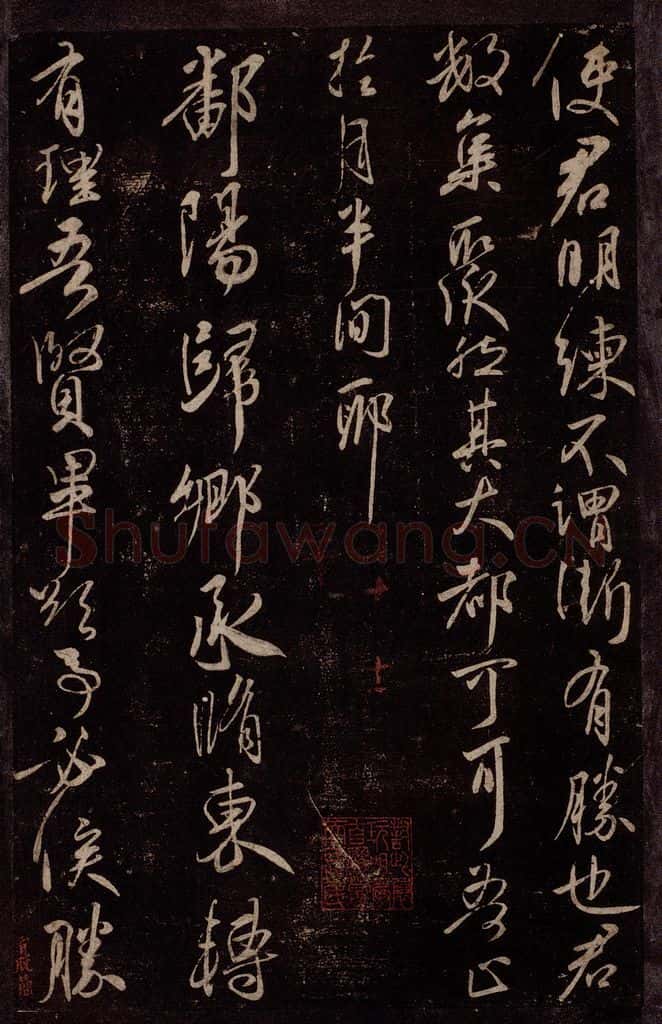 使君明練不謂漸有勝也君
數集聚然其大都可可為止
於月半間耶
鄱陽歸鄉承脩東轉
有理吾賢畢欲事必俟勝
Shufawang.CN